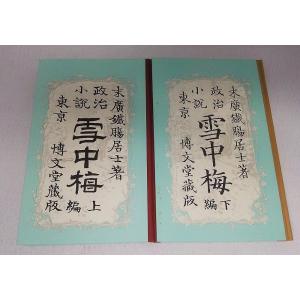 末廣鐵膓居士著
政治小説
雪中梅
上編
東京
博文堂藏版
末廣鐵膓居士著
政治小説
雪中梅
下編
東京
博文堂藏版